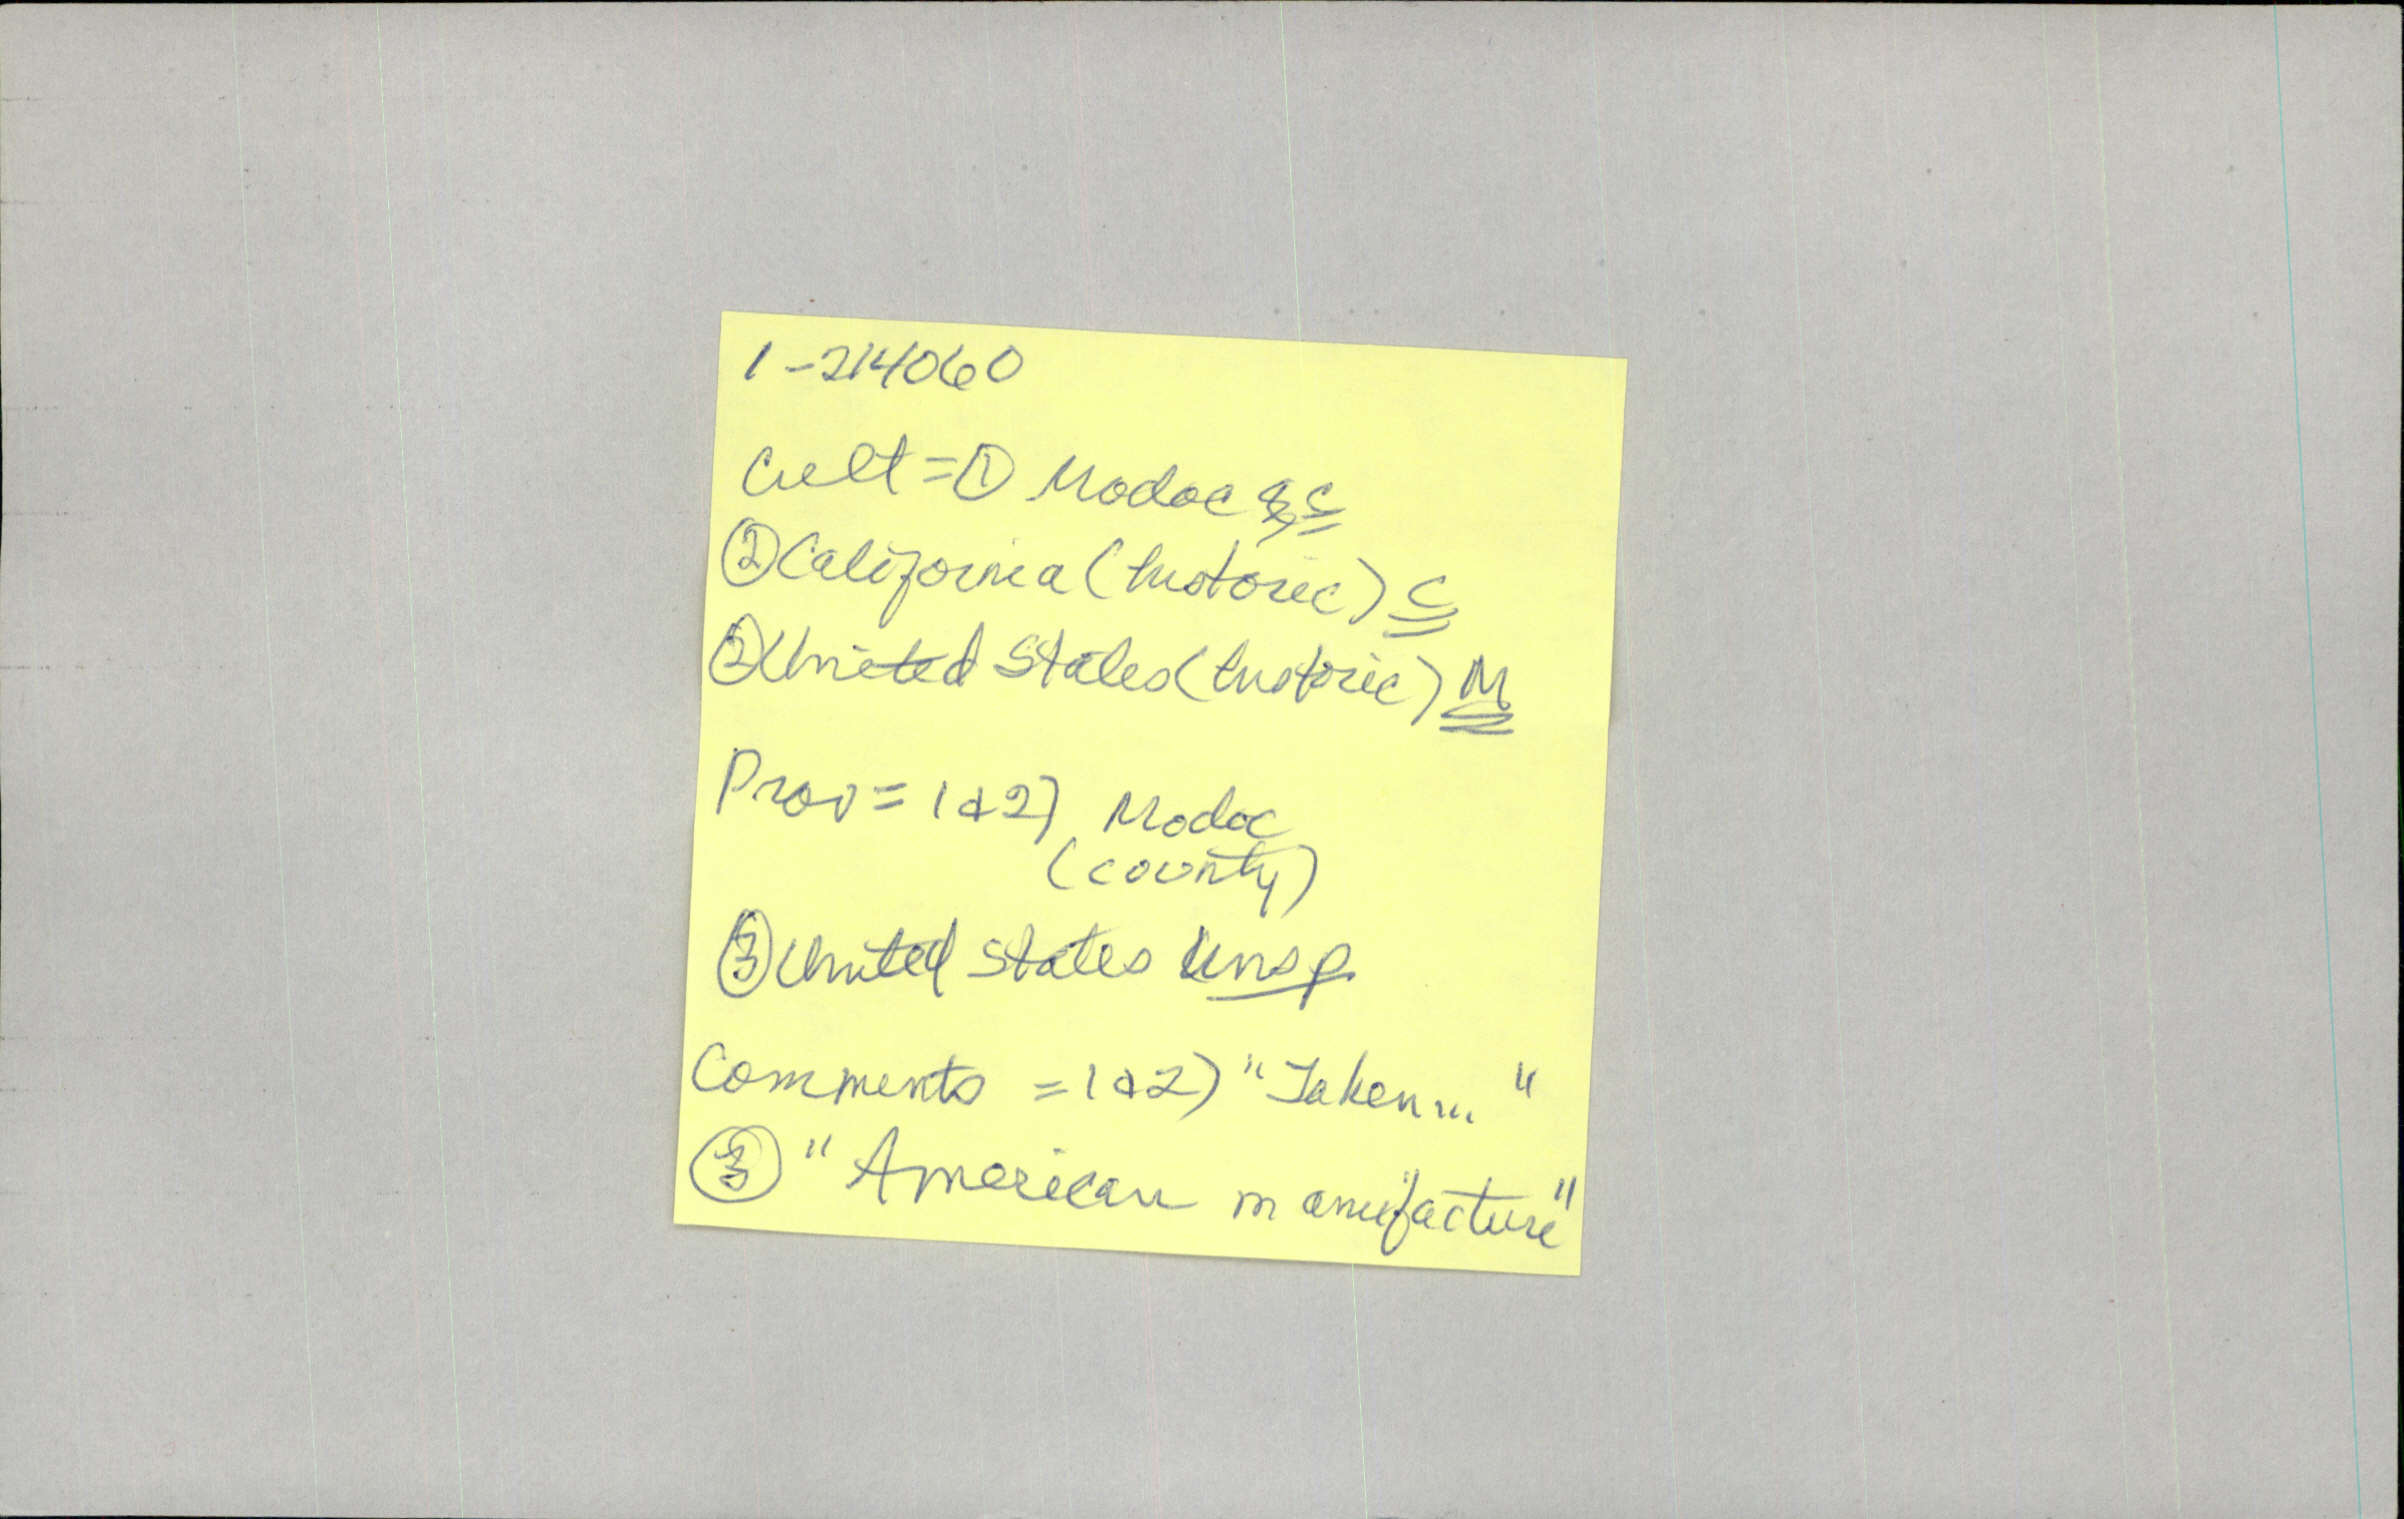 1-214060
Cult = ① Modoc & C
② California (historic) C
② United States (historic) M
Prov = 1 & 2) Modoc
(county)
③ United States Unsp
Comments = 1 & 2) "Taken... "
③ "American manufacture"